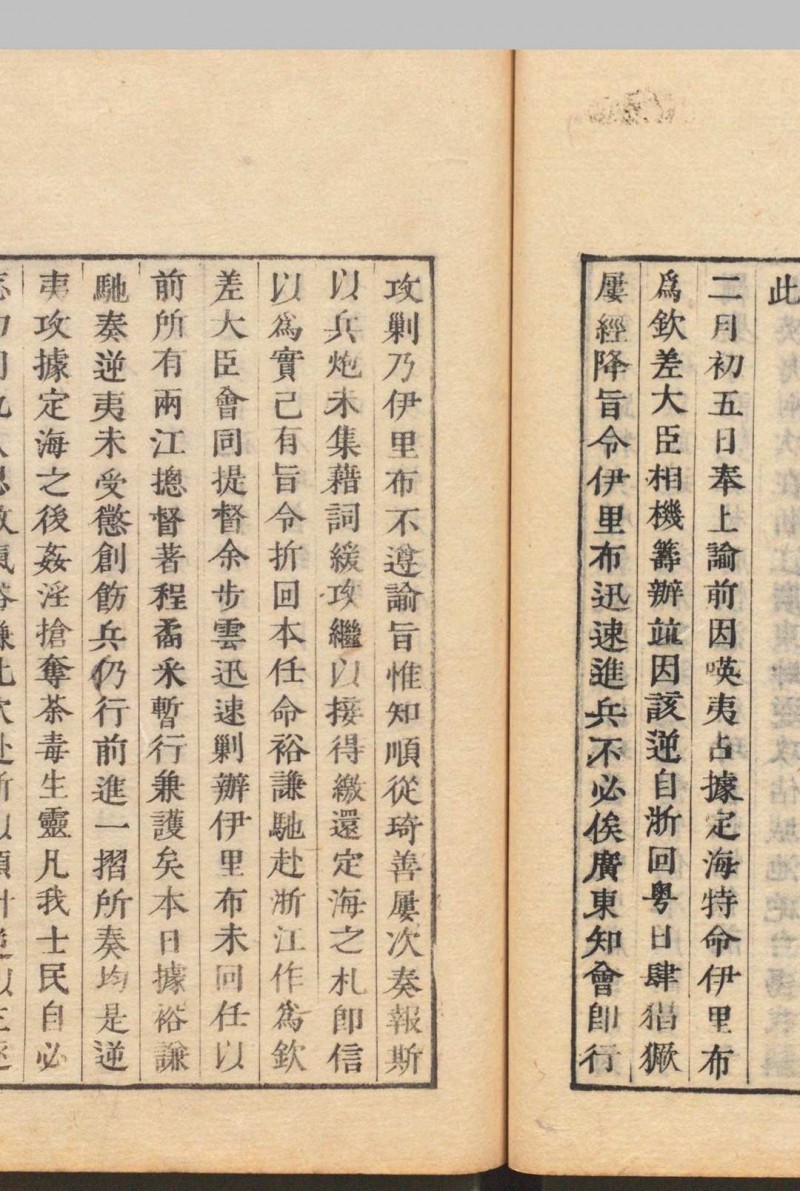 此
二月初五日奉上諭前因嘆夷占據定海特命伊里布
爲欽差大臣相機籌辦並因該逆自浙回粤日肆猖獗
屢經降旨令伊里布迅速進兵不必俟廣東知會即行
攻剿乃伊里布不遵諭旨惟知順從琦善屢次奏報斯
以兵炮未集藉詞緩攻繼以接得繳還定海之札即信
以爲實已有旨令折回本任命裕謙馳赴浙江作爲欽
差大臣會同提督余步雲迅速剿辦伊里布未回任以
前所有兩江摠督著程矞采暫行兼護矣本日據裕謙
馳奏逆夷未受懲創飭兵仍行前進一摺所奏均是逆
夷攻據定海之後姦淫搶奪荼毒生靈凡我士民自必